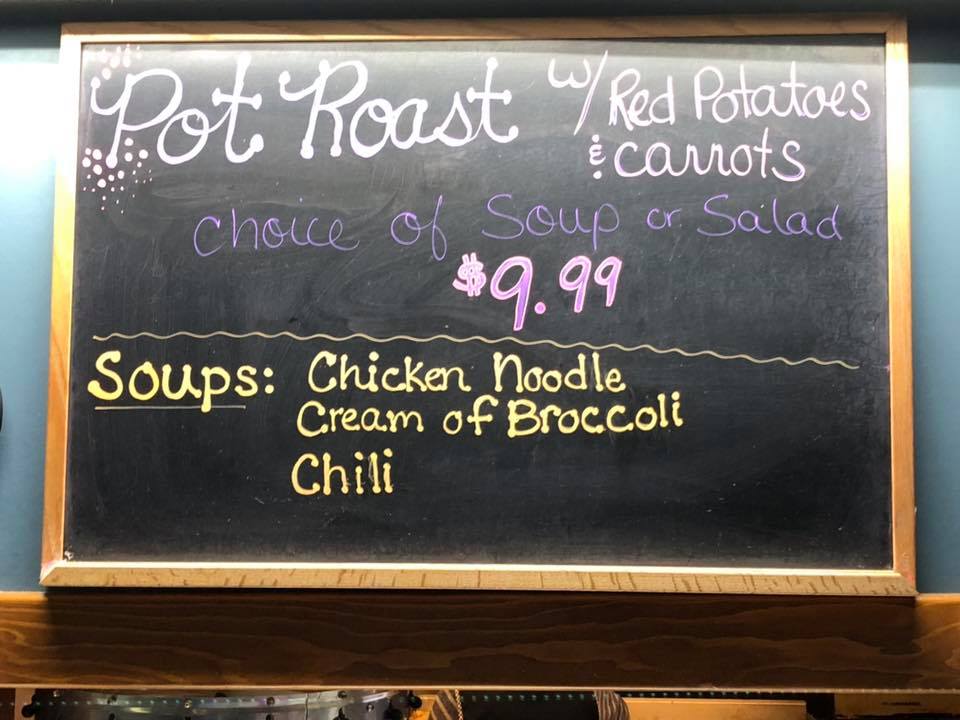 Pot Roast w/ Red Potatoes
& carrots
choice of Soup or Salad
$9.99
Soups: Chicken Noodle
Cream of Broccoli
Chili